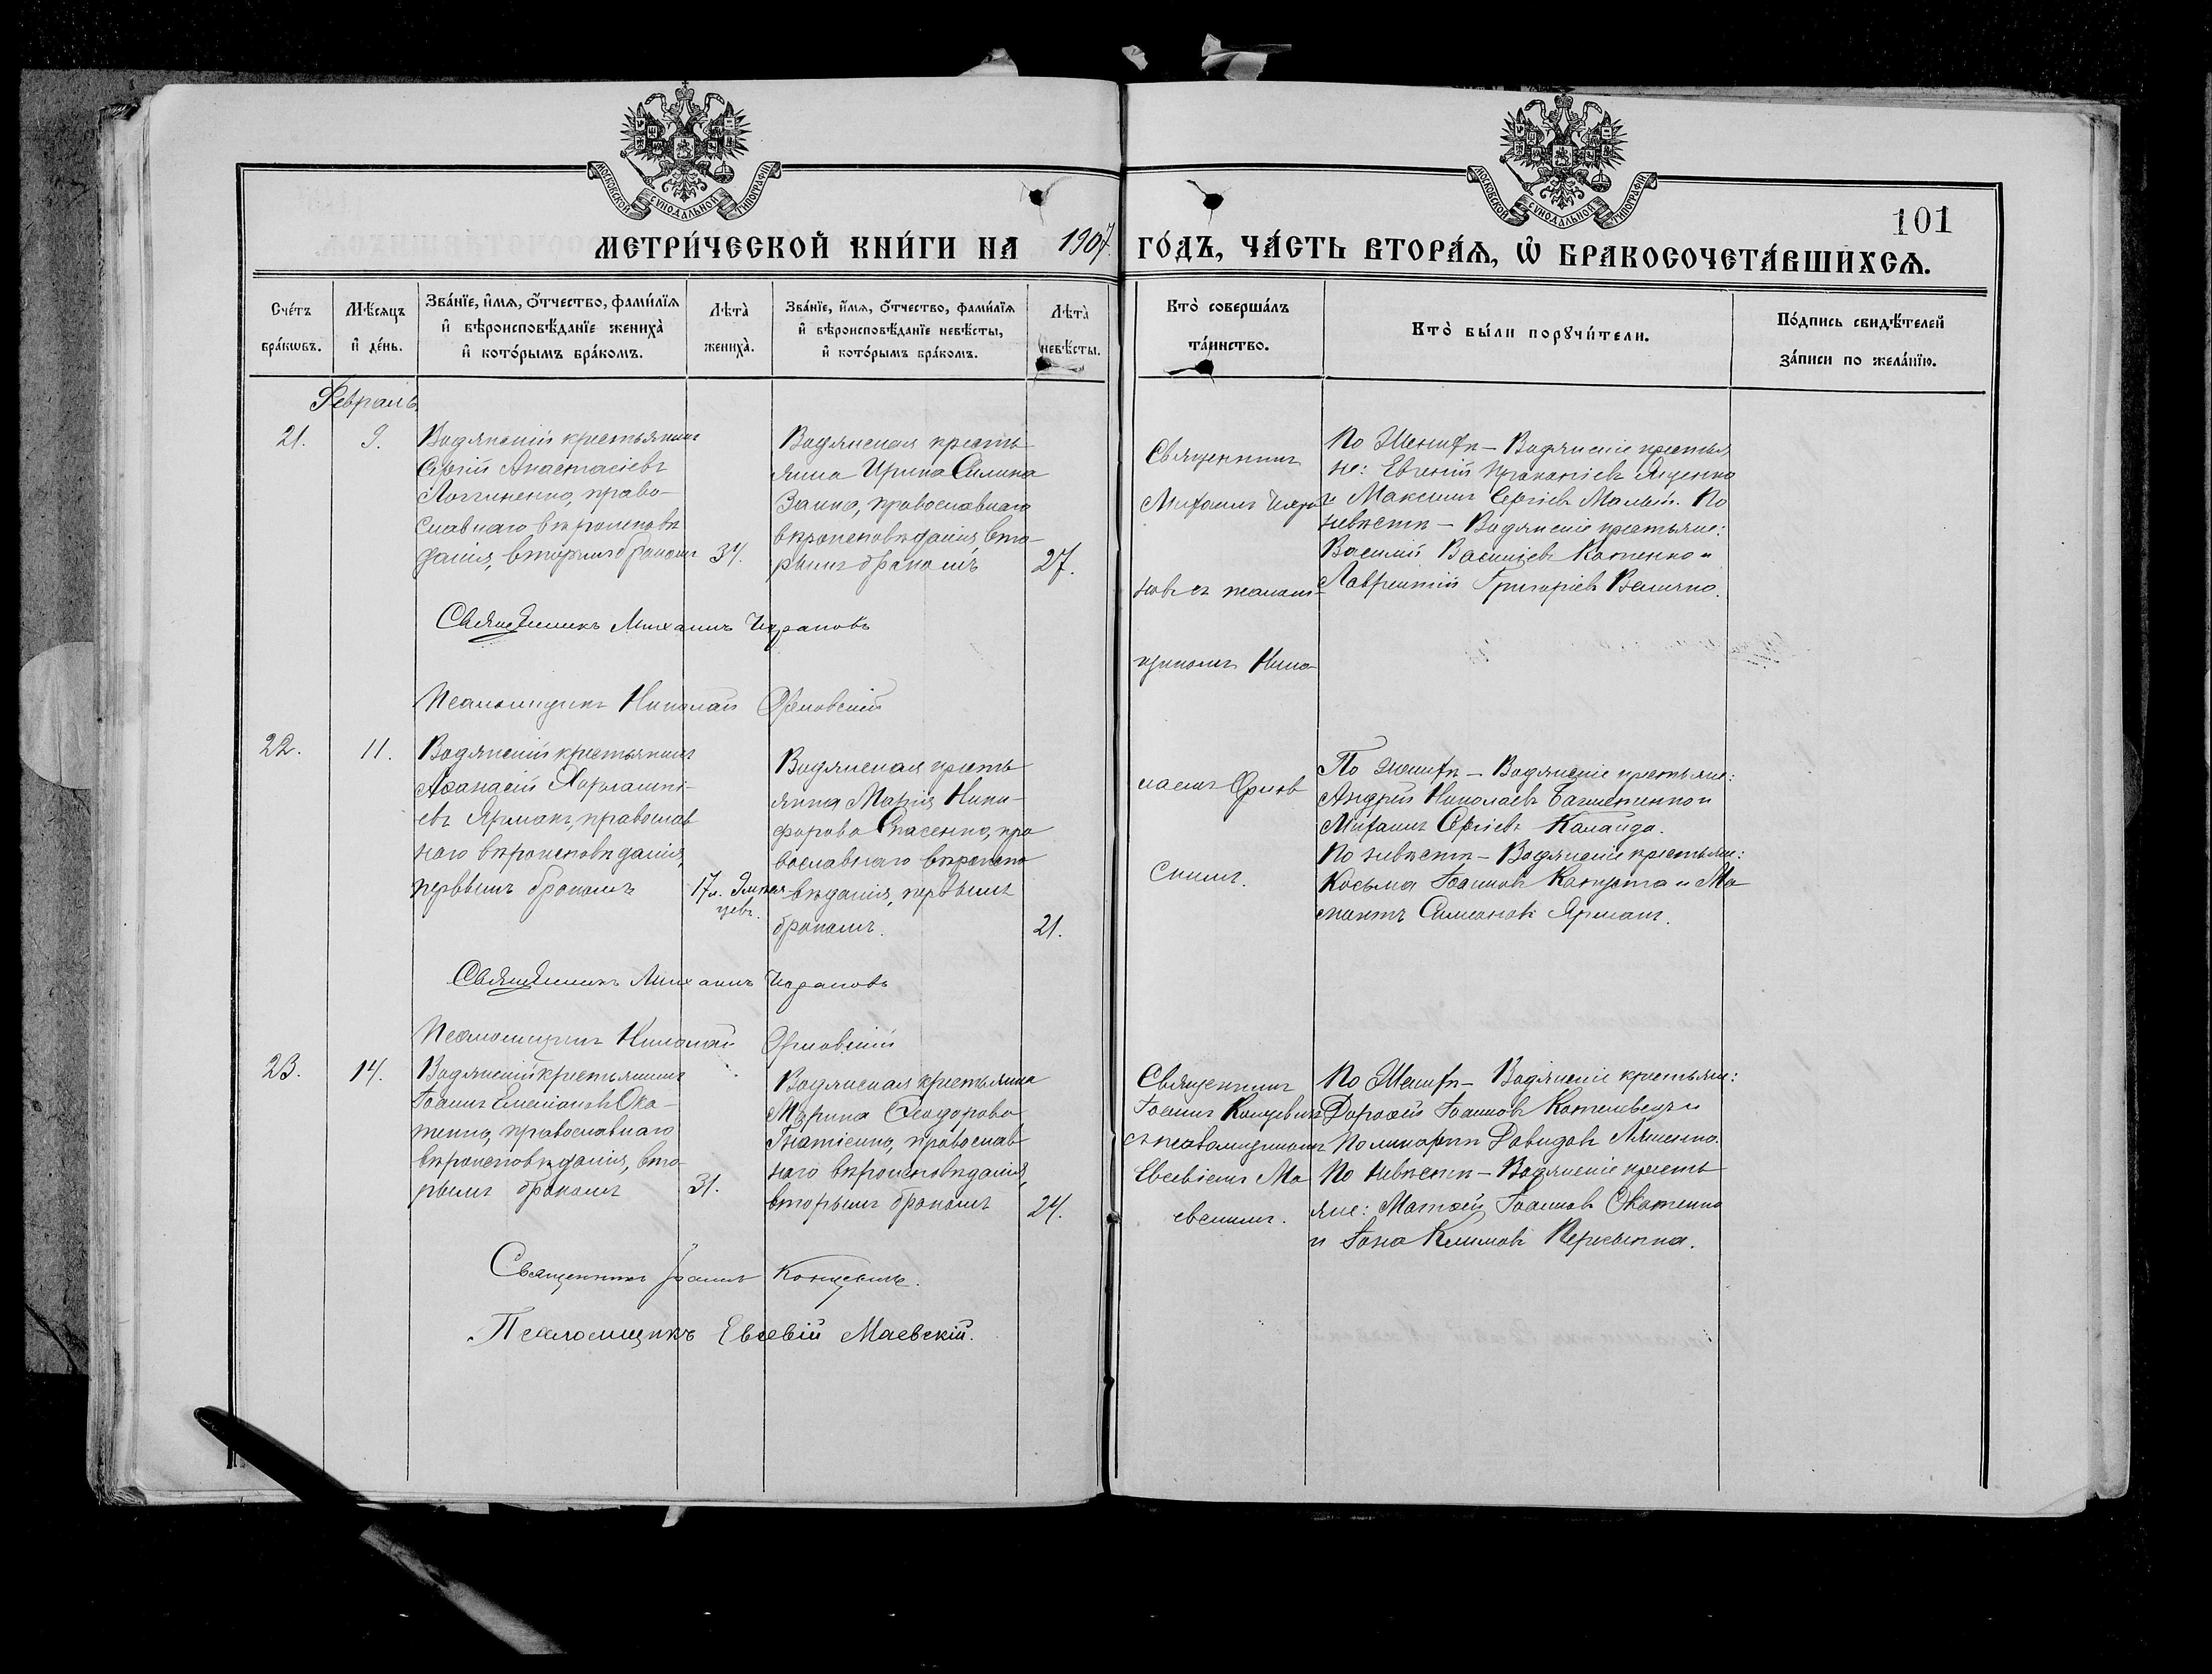 МОСКОВСКОЙ СУНОДАЛЬНОЙ ТИПОГРАФІИ
МОСКОВСКОЙ СУНОДАЛЬНОЙ ТИПОГРАФІИ
101
МЕТРИ́ЧЕСКОЙ КНИ́ГИ НА 1907 ГО́ДЪ, ЧА́СТЬ ВТОРА́Я, Ѡ БРАКОСОЧЕТА́ВШИХСЯ.
Сче́тъ бра́кѡвъ.
Мѣ́сяцъ и҆ де́нь.
Зва́нїе, и҆́мя, ѻ҆́тчество, фами́лїя
и҆ вѣроисповѣ́данїе жениха̀
и҆ кото́рымъ бра́комъ.
Лѣта̀ жениха̀.
Зва́нїе, и҆́мя, ѻ҆́тчество, фами́лїя
и҆ вѣроисповѣ́данїе невѣ́сты,
и҆ кото́рымъ бра́комъ.
Лѣта̀ невѣ́сты.
Кто̀ соверша́лъ
та́инство.
Кто̀ бы́ли порꙋчи́тели.
По́дпись свидѣ́телей
за́писи по жела́нїю.
Февраль
21.
9.
Водянскій крестьянинъ
Сергій Анастасіевъ
Логгиненко, право-
славнаго вѣроисповѣ
данія, вторымъ бракомъ
34.
Водянская кресть
янка Ирина
Заика, православнаго
вѣроисповѣданія, вто-
рымъ бракомъ
27.
Священникъ
Михаилъ
новъ съ псалом-
щикомъ Нико-
лаемъ Орлов
скимъ.
По Женихѣ – Водянскіе крестья
не: Евгеній Яценко
и Максимъ Сергіевъ Малый. По
невѣстѣ – Водянскіе крестьяне:
Василій Василіевъ Котенко и
Лаврентій Григоріевъ Величко.
Священникъ Михаилъ
Псаломщикъ Николай Орловскій
22.
11.
Водянскій крестьянинъ
Аѳанасій Харлампі-
евъ Ярмакъ, православ
наго вѣроисповѣданія,
первымъ бракомъ
17 л.
Водянская кресть
янка Марія Ники-
форова Спасенко, пра
вославнаго вѣроиспо
вѣданія, первымъ
бракомъ.
21.
По женихѣ – Водянскіе крестьяне:
Андрей Николаевъ и
Михаилъ Сергіевъ Калайда.
По невѣстѣ – Водянскіе крестьяне:
Косьма Іоанновъ Капуста и
Симеоновъ Ярмакъ.
Священникъ Михаилъ
Псаломщикъ Николай Орловскій
23.
14.
Водянскій крестьянинъ
Іоаннъ Емеліановъ Ока-
тенко, православнаго
вѣроисповѣданія, вто-
рымъ бракомъ
31.
Водянская крестьянка
Марина Ѳеодорова
православ
наго вѣроисповѣданія,
вторымъ бракомъ
24.
Священникъ
Іоаннъ
съ псаломщикомъ
Евсевіемъ Ма
евскимъ.
По Женихѣ – Водянскіе крестьяне:
Дороѳей Іоанновъ Котелевецъ и
Поликарпъ Давидовъ Ляшенко.
По Невѣстѣ – Водянскіе кресть
яне: Матѳей Іоанновъ Окатенко
и Іона Климовъ
Священникъ Іоаннъ
Псаломщикъ Евсевій Маевскій.